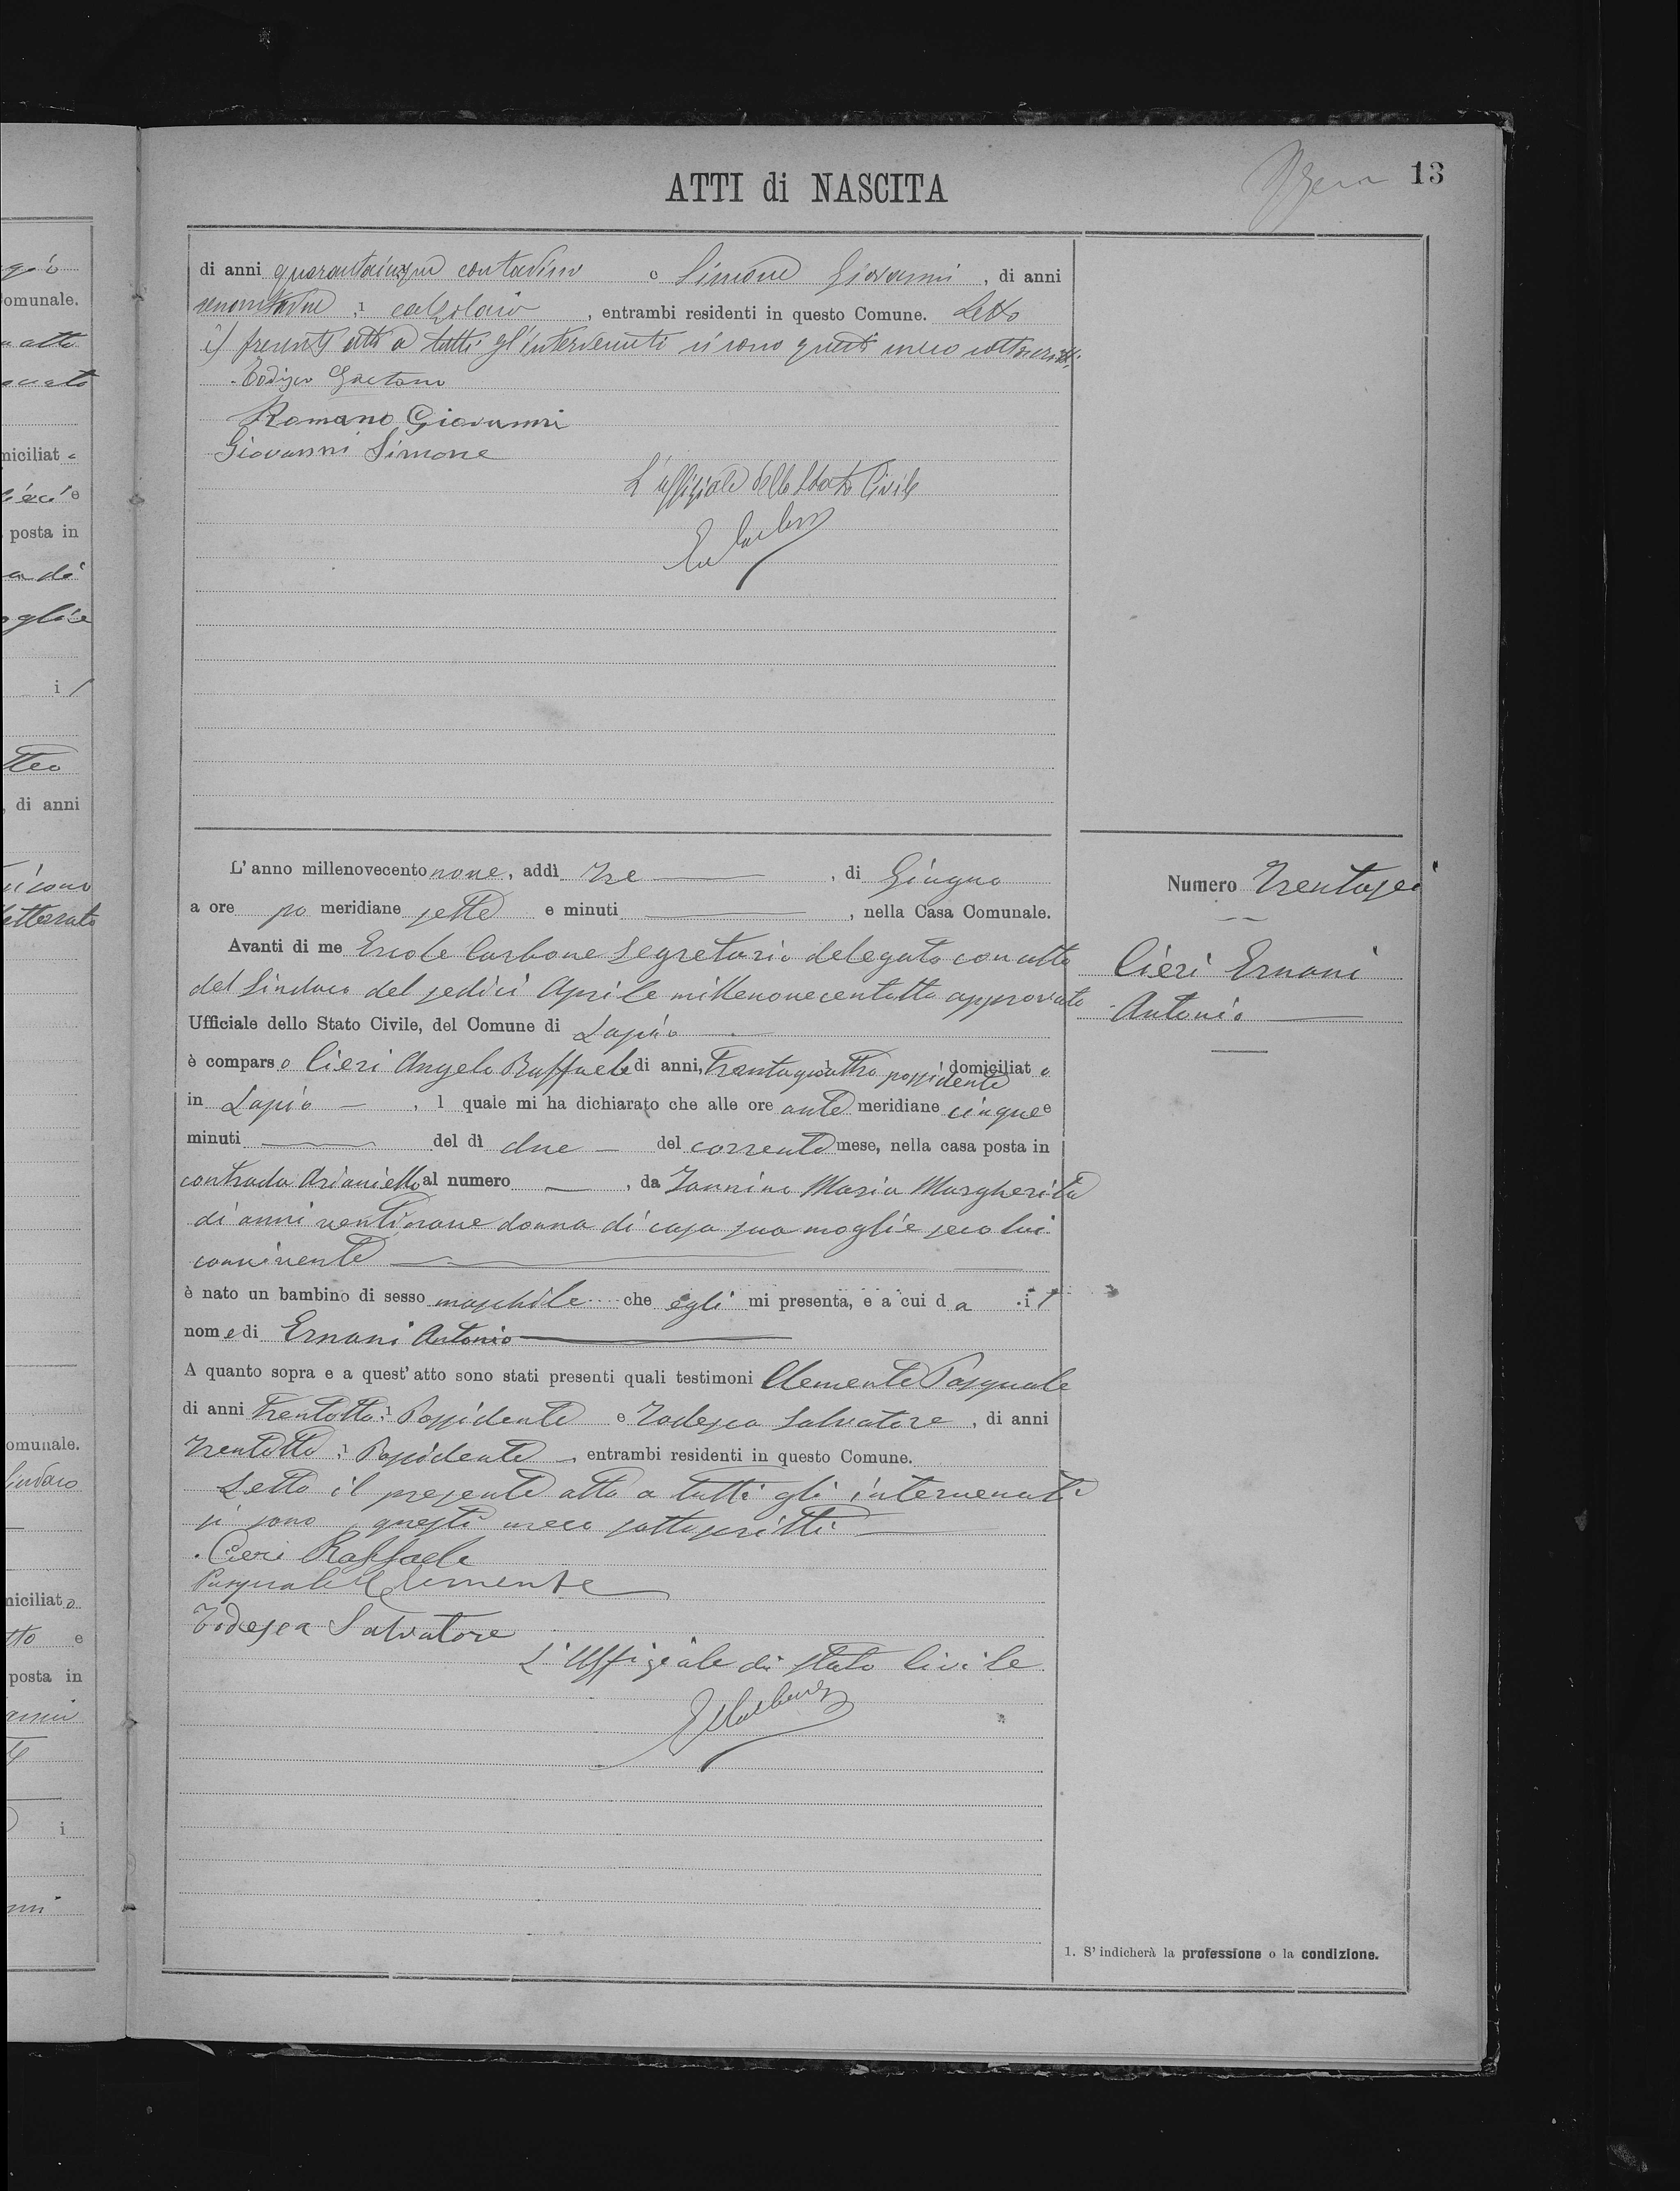 ATTI di NASCITA
13
di anni quarantacinque contadino e Simone Giovanni, di anni
1 calzolaio, entrambi residenti in questo Comune. Letto
il presente atto a tutti gl'intervenuti si sono questi meco sottoscritti.
Gaetano
Romano Giovanni
Giovanni Simone
L'uffiziale dello Stato Civile
L'anno millenovecentonove, addì Tre, di Giugno
a ore po meridiane sette e minuti, nella Casa Comunale.
Avanti di me Ercole Carbone Segretario delegato con atto
del Sindaco del sedici Aprile millenovecentotto approvato
Ufficiale dello Stato Civile, del Comune di Lapio
è comparso Cieri Angelo Raffaele di anni, trentaquattro possidente domiciliato
in Lapio, 1 quale mi ha dichiarato che alle ore ante meridiane cinque e
minuti del dì due del corrente mese, nella casa posta in
contrada Arianiello al numero, da Iannino Maria Margherita
di anni ventinove donna di casa sua moglie seco lui
convivente
è nato un bambino di sesso maschile che egli mi presenta, e a cui da il
nome di Ernani Antonio
A quanto sopra e a quest'atto sono stati presenti quali testimoni Clemente Pasquale
di anni trentotto, 1 Possidente e Todesca Salvatore, di anni
trentotto, 1 Possidente, entrambi residenti in questo Comune.
Letto il presente atto a tutti gli intervenuti
si sono questi meco sottoscritti
Cieri Raffaele
Pasquale Clemente
Todesca Salvatore
L'Uffiziale di Stato Civile
Numero Trentasei
Cieri Ernani
Antonio
1. S'indicherà la professione o la condizione.